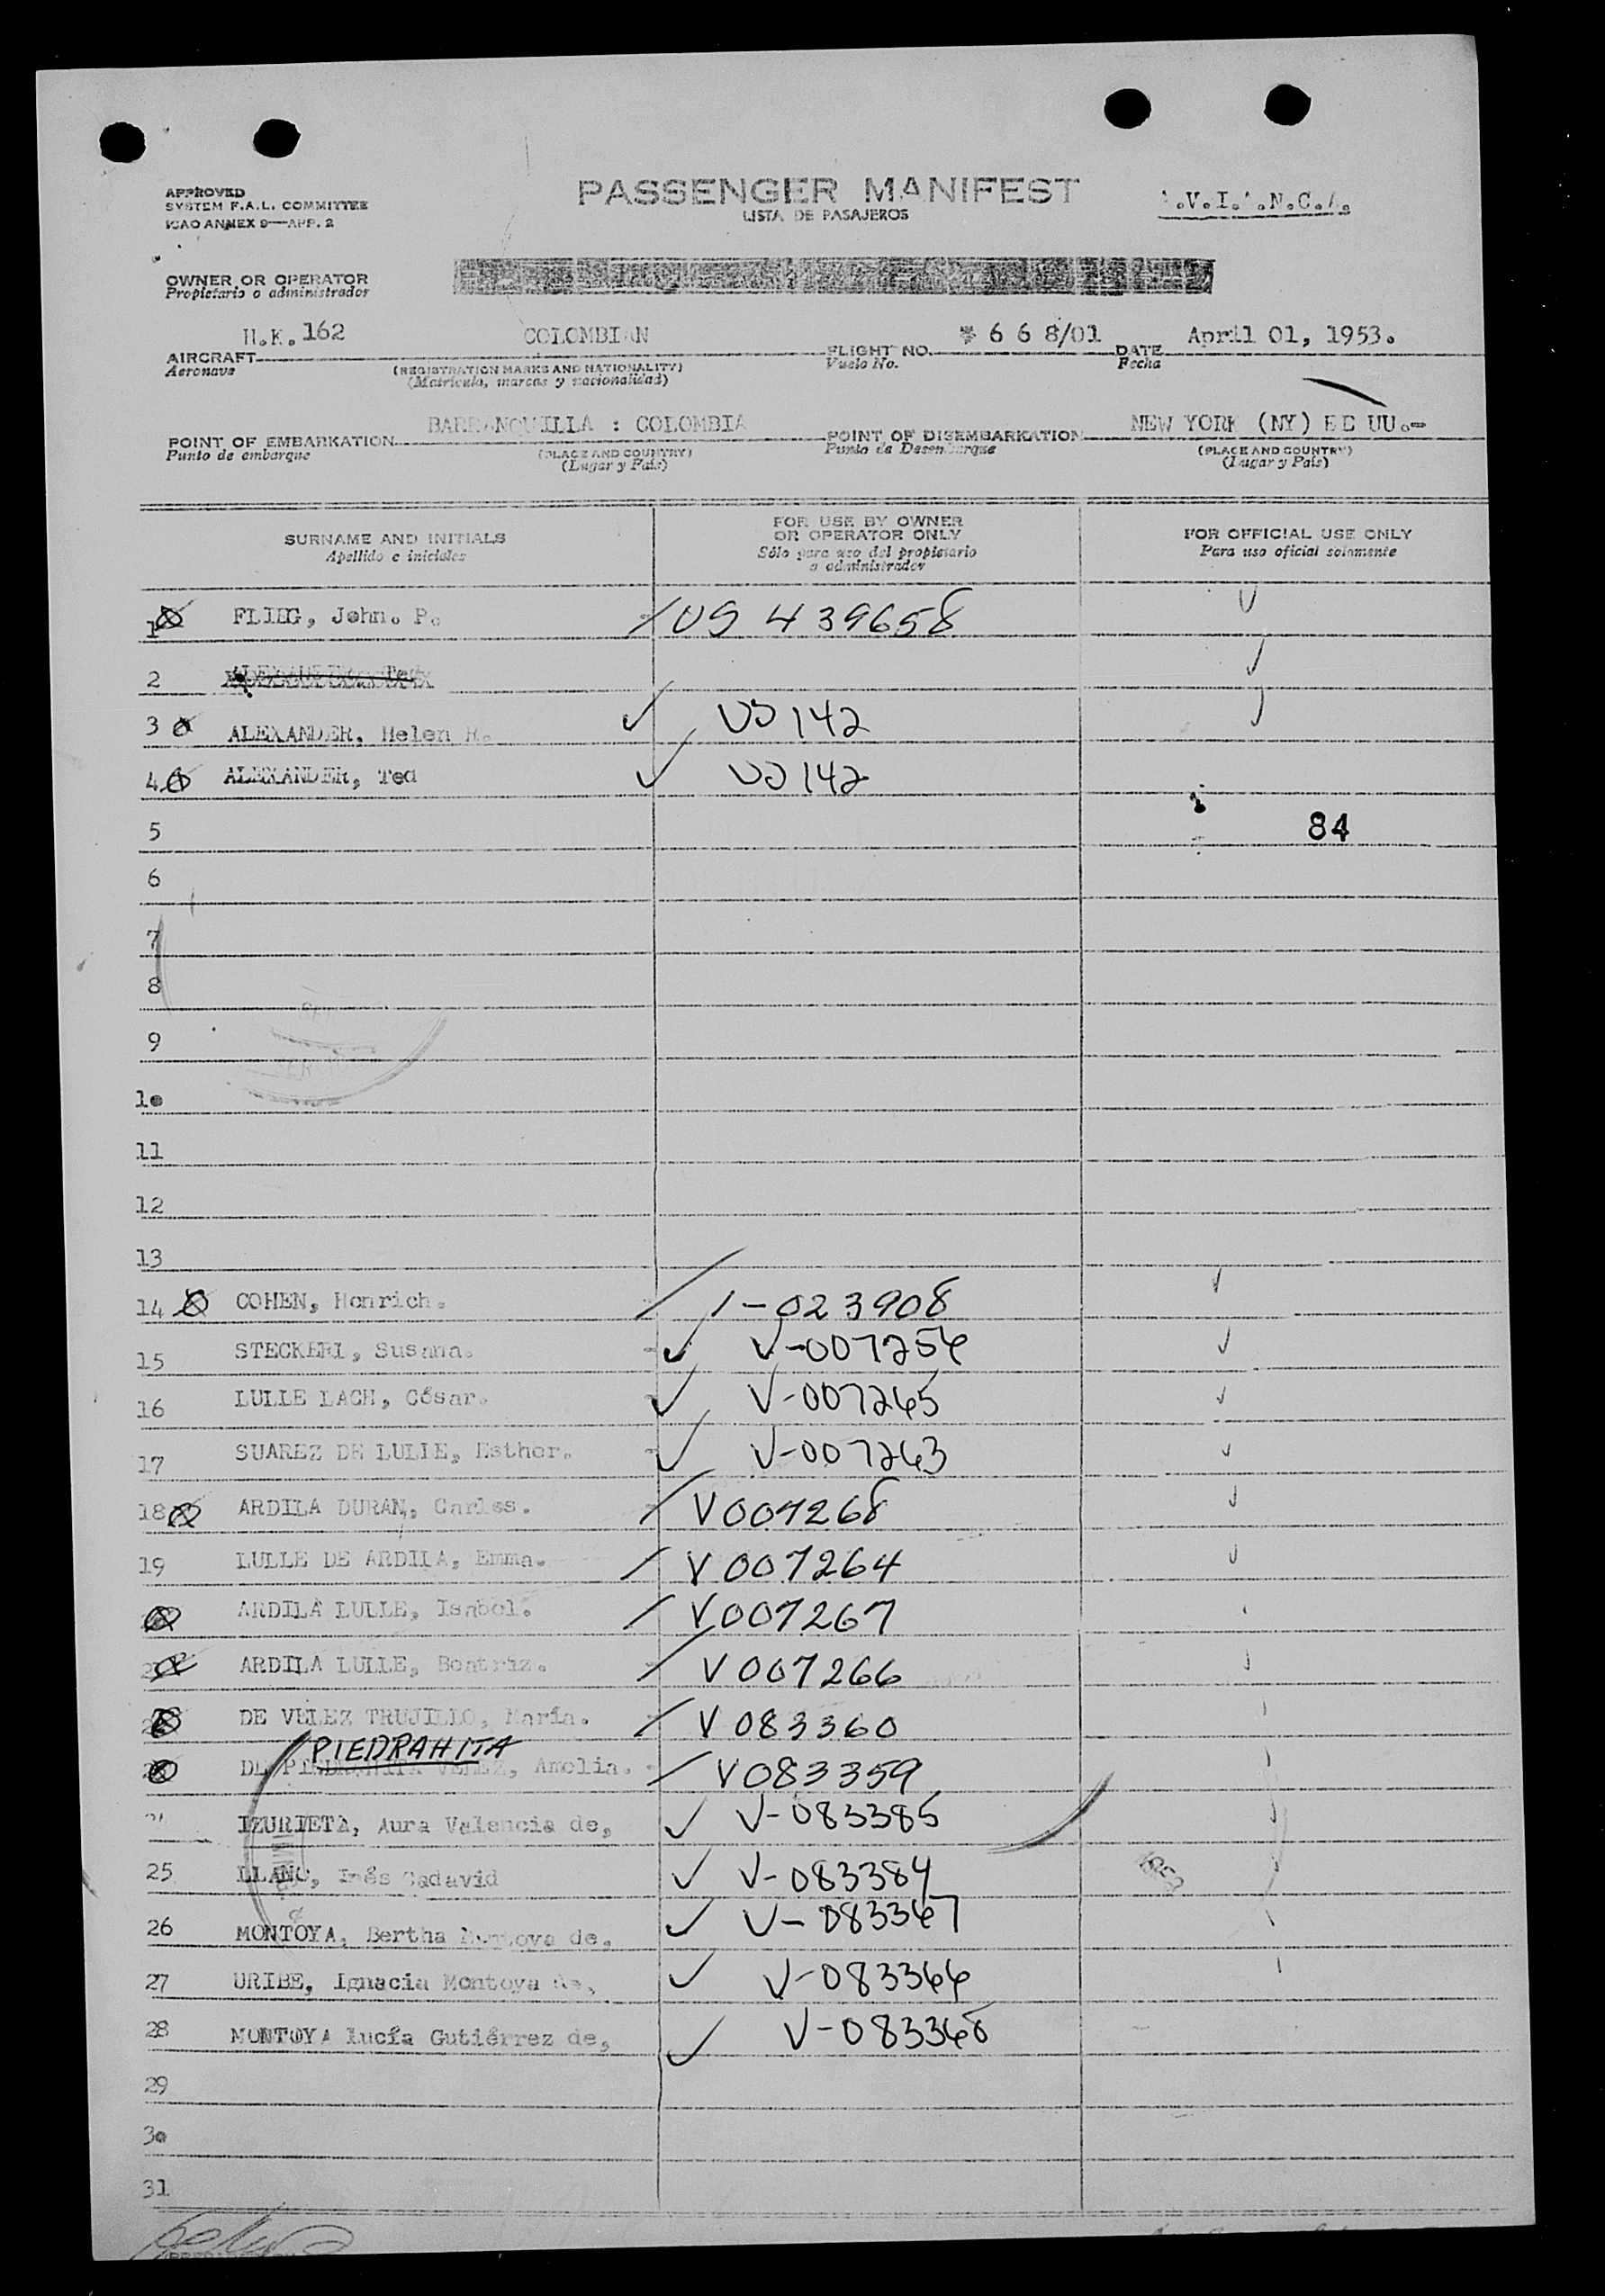 APPROVED
SYSTEM F.A.L. COMMITTEE
ICAO ANNEX 9—APP. 2
PASSENGER MANIFEST
LISTA DE PASAJEROS
A.V.I.A.N.C.A.
OWNER OR OPERATOR
Propietario o administrador
AIRCRAFT H.K. 162 COLOMBIAN FLIGHT NO. * 6 6 8/01 DATE April 01, 1953.
Aeronave (REGISTRATION MARKS AND NATIONALITY) Vuelo No. Fecha
(Matrícula, marcas y nacionalidad)
POINT OF EMBARKATION BARRANQUILLA : COLOMBIA POINT OF DISEMBARKATION NEW YORK (NY) EE UU.-
Punto de embarque (PLACE AND COUNTRY) Punto de Desembarque (PLACE AND COUNTRY)
(Lugar y País) (Lugar y País)
SURNAME AND INITIALS
Apellido e iniciales
FOR USE BY OWNER
OR OPERATOR ONLY
Sólo para uso del propietario
o administrador
FOR OFFICIAL USE ONLY
Para uso oficial solamente
1 FLIEG, John. P. US 439658
2
3 ALEXANDER, Helen R. US 142
4 ALEXANDER, Ted US 142
5 84
6
7
8
9
10
11
12
13
14 COHEN, Henrich. 1-023908
15 STECKERL, Susana. V-007254
16 LULLE LACH, César. V-007265
17 SUAREZ DE LULLE, Esther. V-007263
18 ARDILA DURAN, Carlos. V007268
19 LULLE DE ARDILA, Emma. V007264
ARDILA LULLE, Isabel. V007267
ARDILA LULLE, Beatriz. V007266
DE VELEZ TRUJILLO, María. V083360
PIEDRAHITA
DE PIEDRAHITA VELEZ, Amelia. V083359
IZURIETA, Aura Valencia de, V-083385
25 LLANO, Inés Cadavid V-083384
26 MONTOYA, Bertha Montoya de, V-083367
27 URIBE, Ignacia Montoya de, V-083366
28 MONTOYA Lucía Gutiérrez de, V-083368
29
30
31